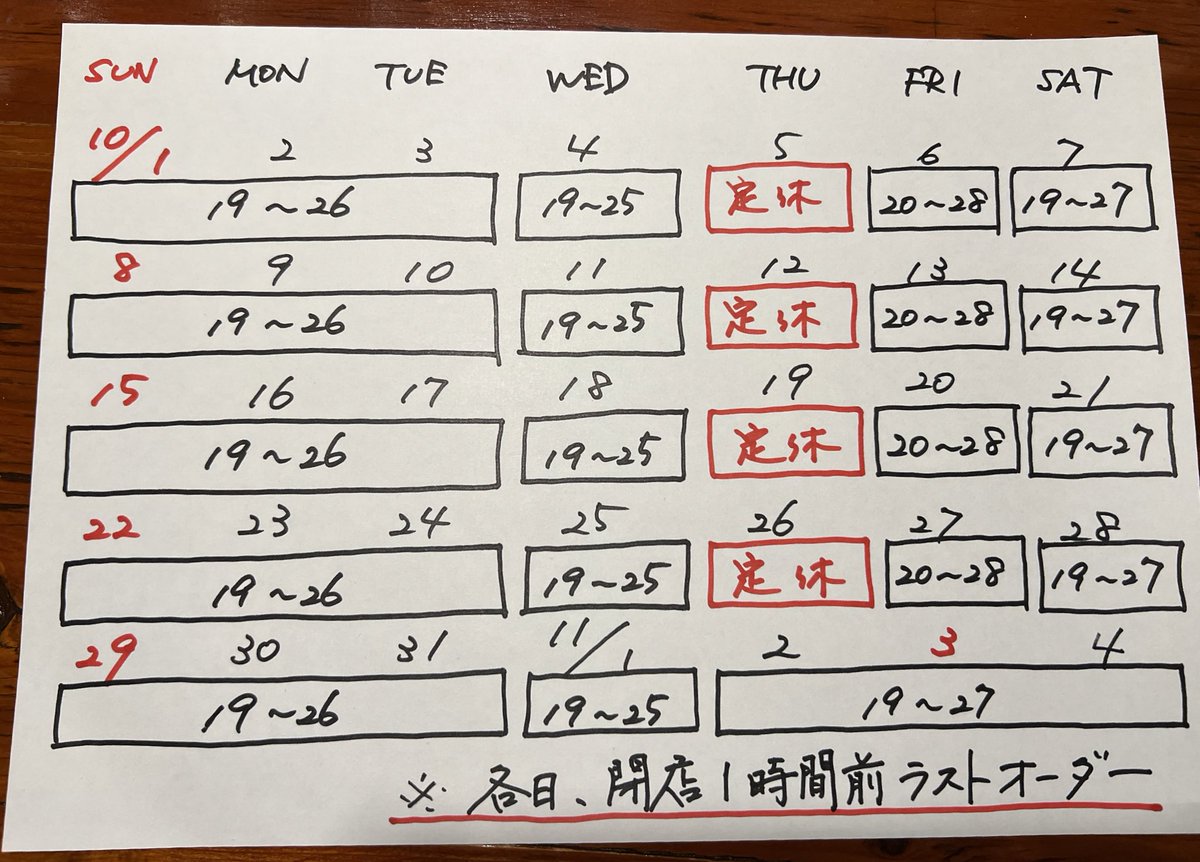 SUN MON TUE WED THU FRI SAT
10/1 2 3 4 5 6 7
19~26 19~25 定休 20~28 19~27
8 9 10 11 12 13 14
19~26 19~25 定休 20~28 19~27
15 16 17 18 19 20 21
19~26 19~25 定休 20~28 19~27
22 23 24 25 26 27 28
19~26 19~25 定休 20~28 19~27
29 30 31 11/1 2 3 4
19~26 19~25 19~27
※ 各日、閉店1時間前ラストオーダー